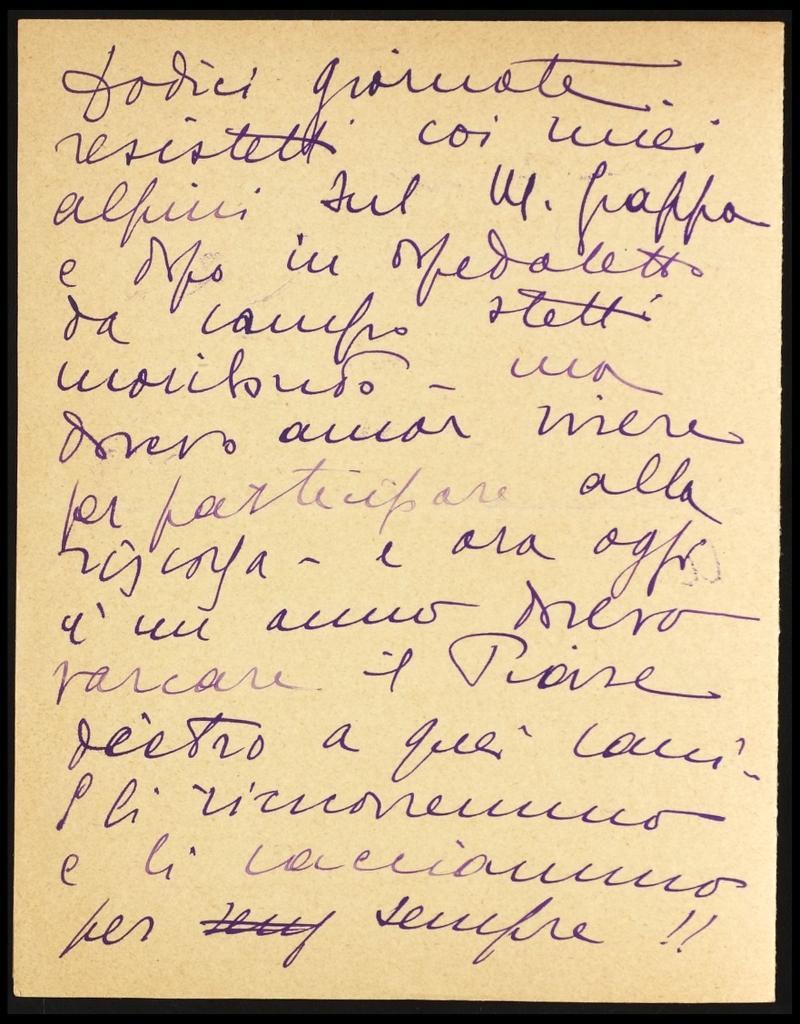 Dodici giornate
resistetti coi miei
alpini sul M. Grappa
e dopo in ospedaletto
da campo stetti
moribondo - ma
dovevo ancor vivere
per partecipare alla
riscossa - e ora oggi
è un anno dovevo
varcare il Piave
dietro a quei cani -
E li rincorremmo
e li cacciammo
per sempre !!